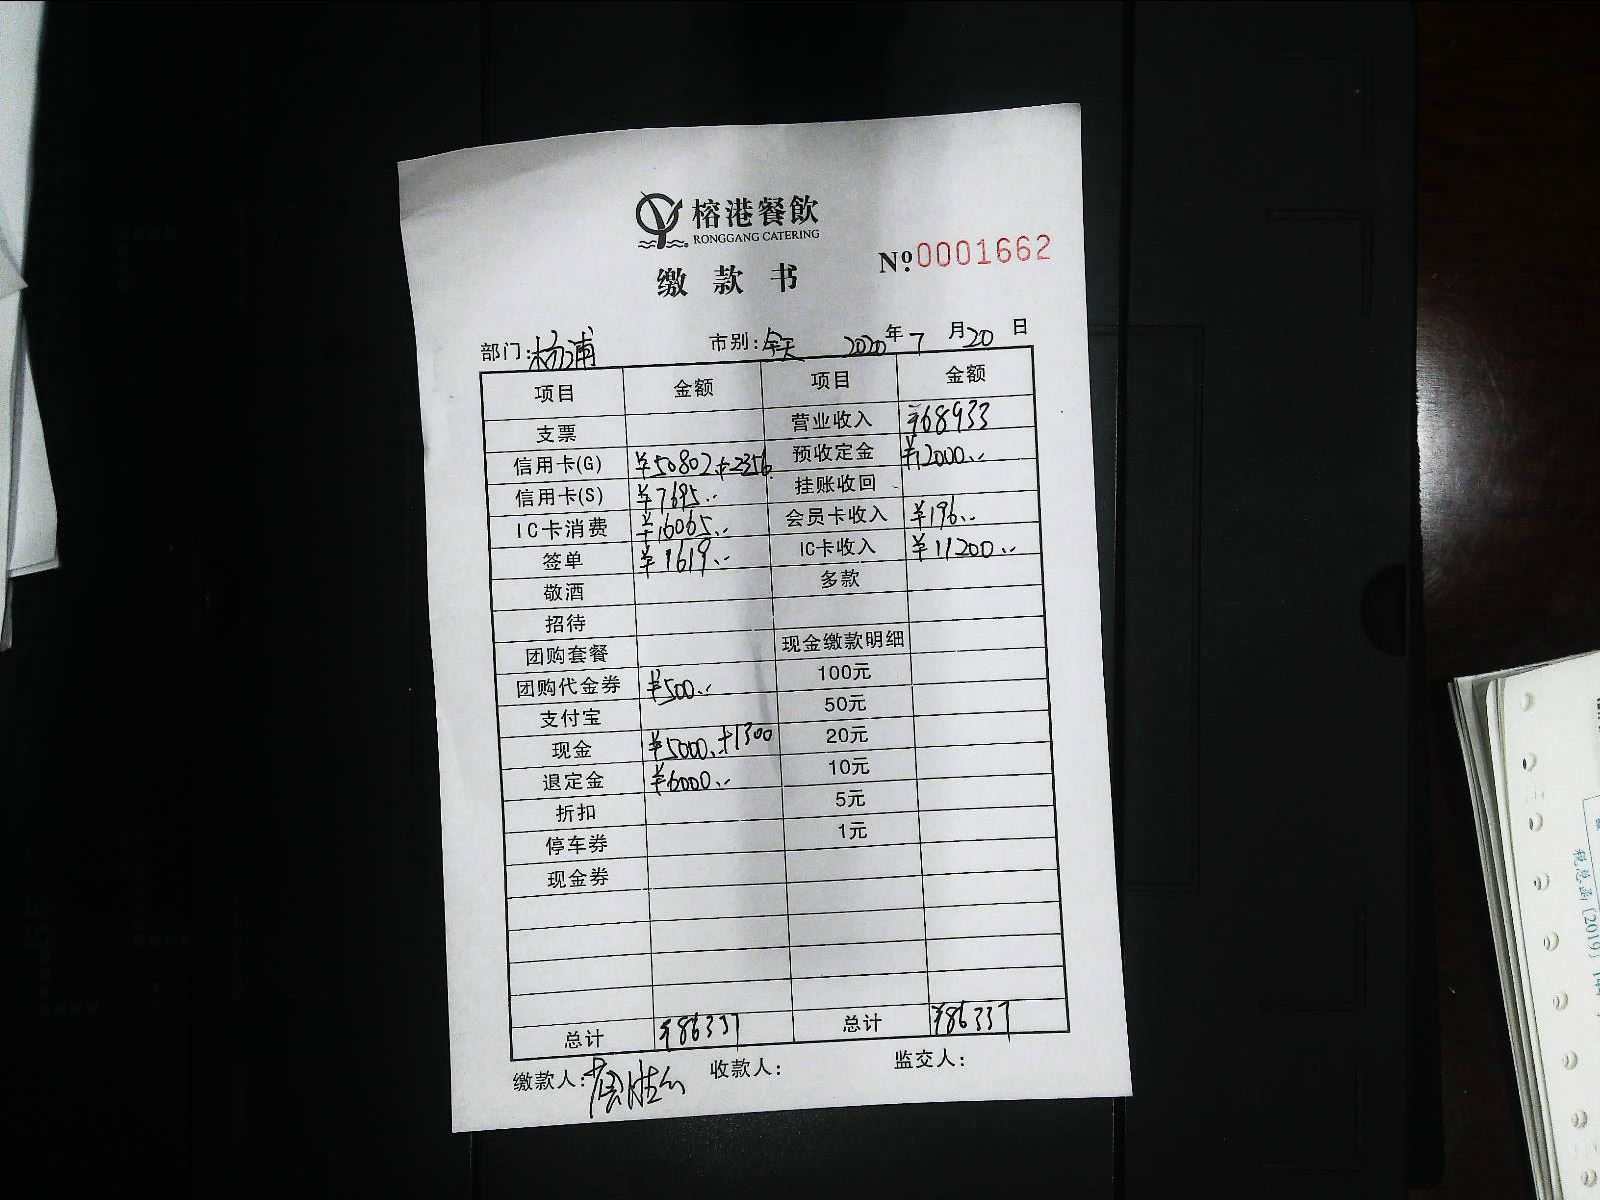 榕港餐飲
RONGGANG CATERING
缴款书
Nº0001662
部门:杨浦 市别:全天 2020年7月20日
项目 金额 项目 金额
支票 营业收入 ¥68933
信用卡(G) ¥50802.+2356 预收定金 ¥12000..
信用卡(S) ¥7695.. 挂账收回
IC卡消费 ¥16065.. 会员卡收入 ¥196..
签单 ¥1619.. IC卡收入 ¥11200..
敬酒 多款
招待
团购套餐 现金缴款明细
团购代金券 ¥500.. 100元
支付宝 50元
现金 ¥5000.+1300 20元
退定金 ¥6000.. 10元
折扣 5元
停车券 1元
现金券
总计 ¥86337 总计 ¥86337
缴款人: 收款人: 监交人: